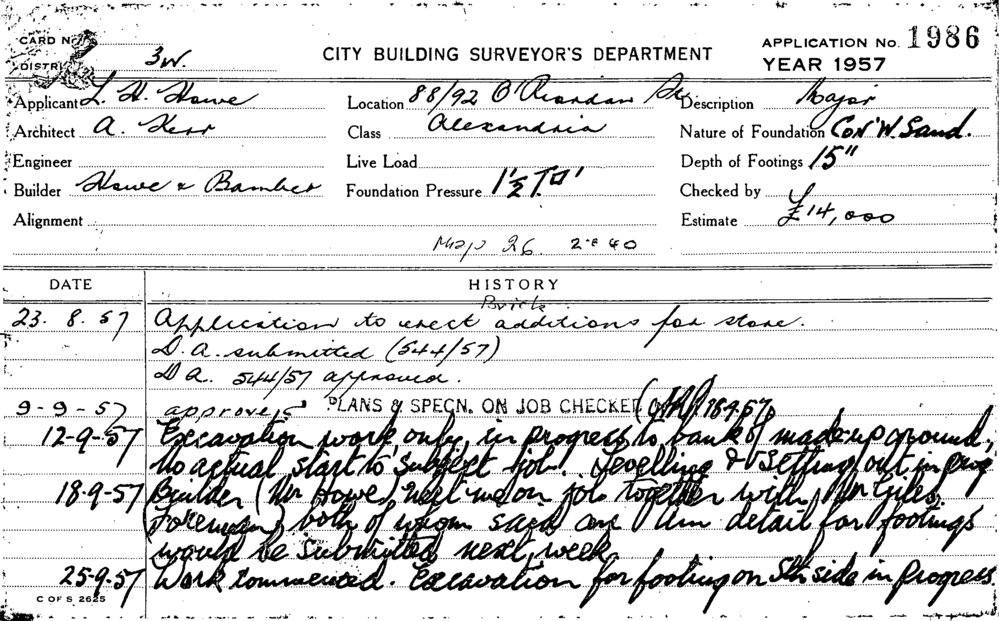 CARD No.
DISTRI 3W.
CITY BUILDING SURVEYOR'S DEPARTMENT
APPLICATION No. 1986
YEAR 1957
Applicant L. H. Howe Location 88/92 O'Riordan St. Description Major
Architect A. Kerr Class Alexandria Nature of Foundation Con'W. Sand.
Engineer Live Load Depth of Footings 15"
Builder Howe & Bamber Foundation Pressure 1½ T□' Checked by
Alignment Estimate £14,000
Map 26
DATE HISTORY
Brick
23. 8. 57 Application to erect additions for store.
D. A. submitted (544/57)
D A. 544/57 approved.
9-9-57 approved PLANS & SPECN. ON JOB CHECKED 18.9.57
12-9-57 Excavation work only, in progress to bank of made up ground,
No actual start to subject job. Levelling & Setting out in prog
18-9-57 Builder (Mr Howe) met me on job together with Mr Giles
(Foreman) both of whom said detail for footings
would be submitted next week.
25-9-57 Work commenced. Excavation for footing on Sth side in progress.
C OF S 2625